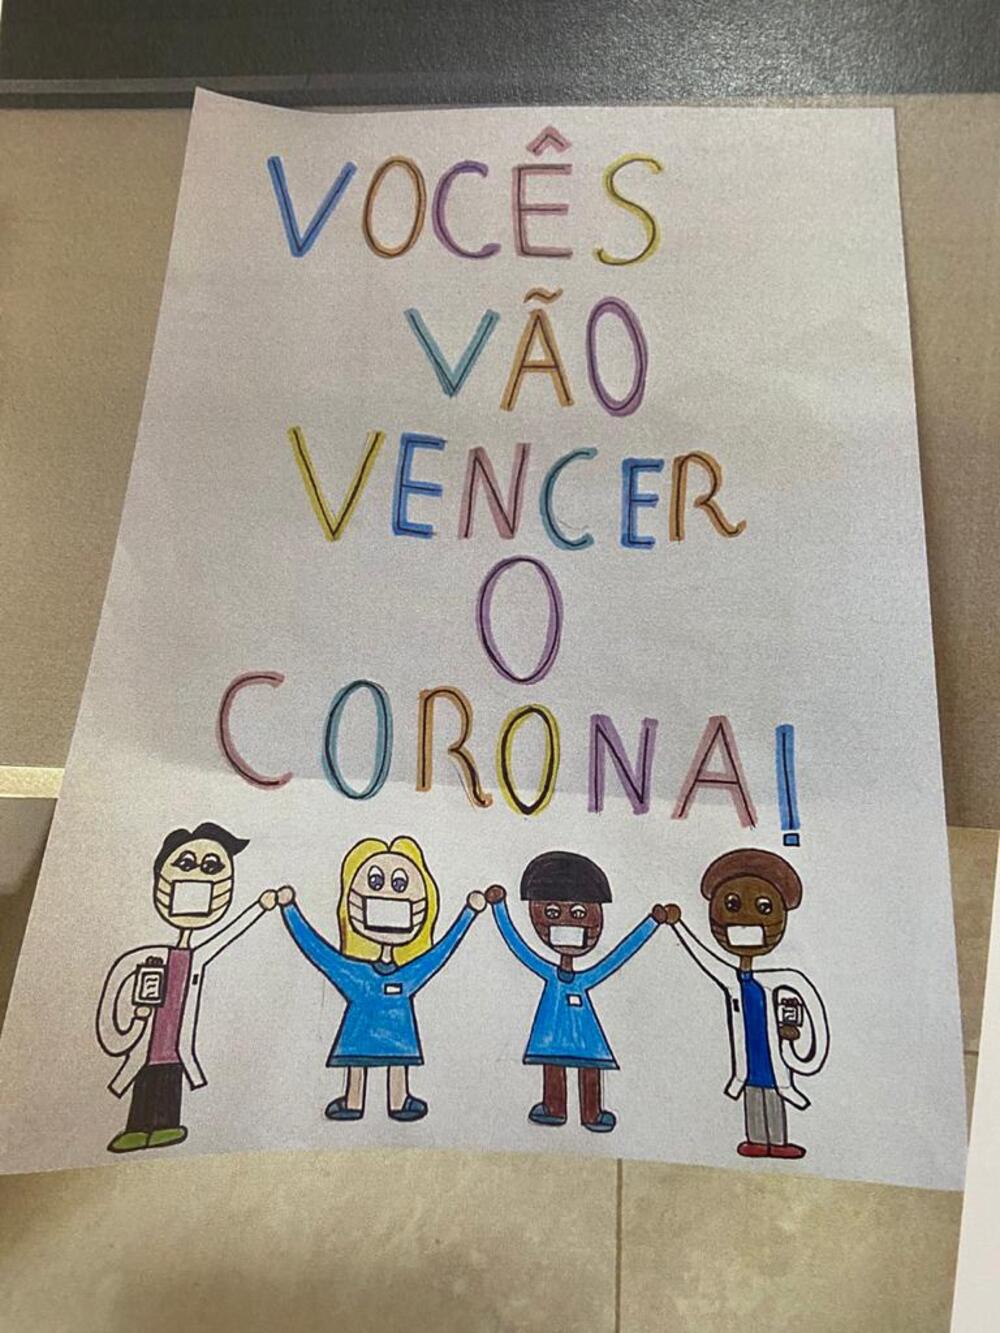 VOCÊS
VÃO
VENCER
O
CORONA!